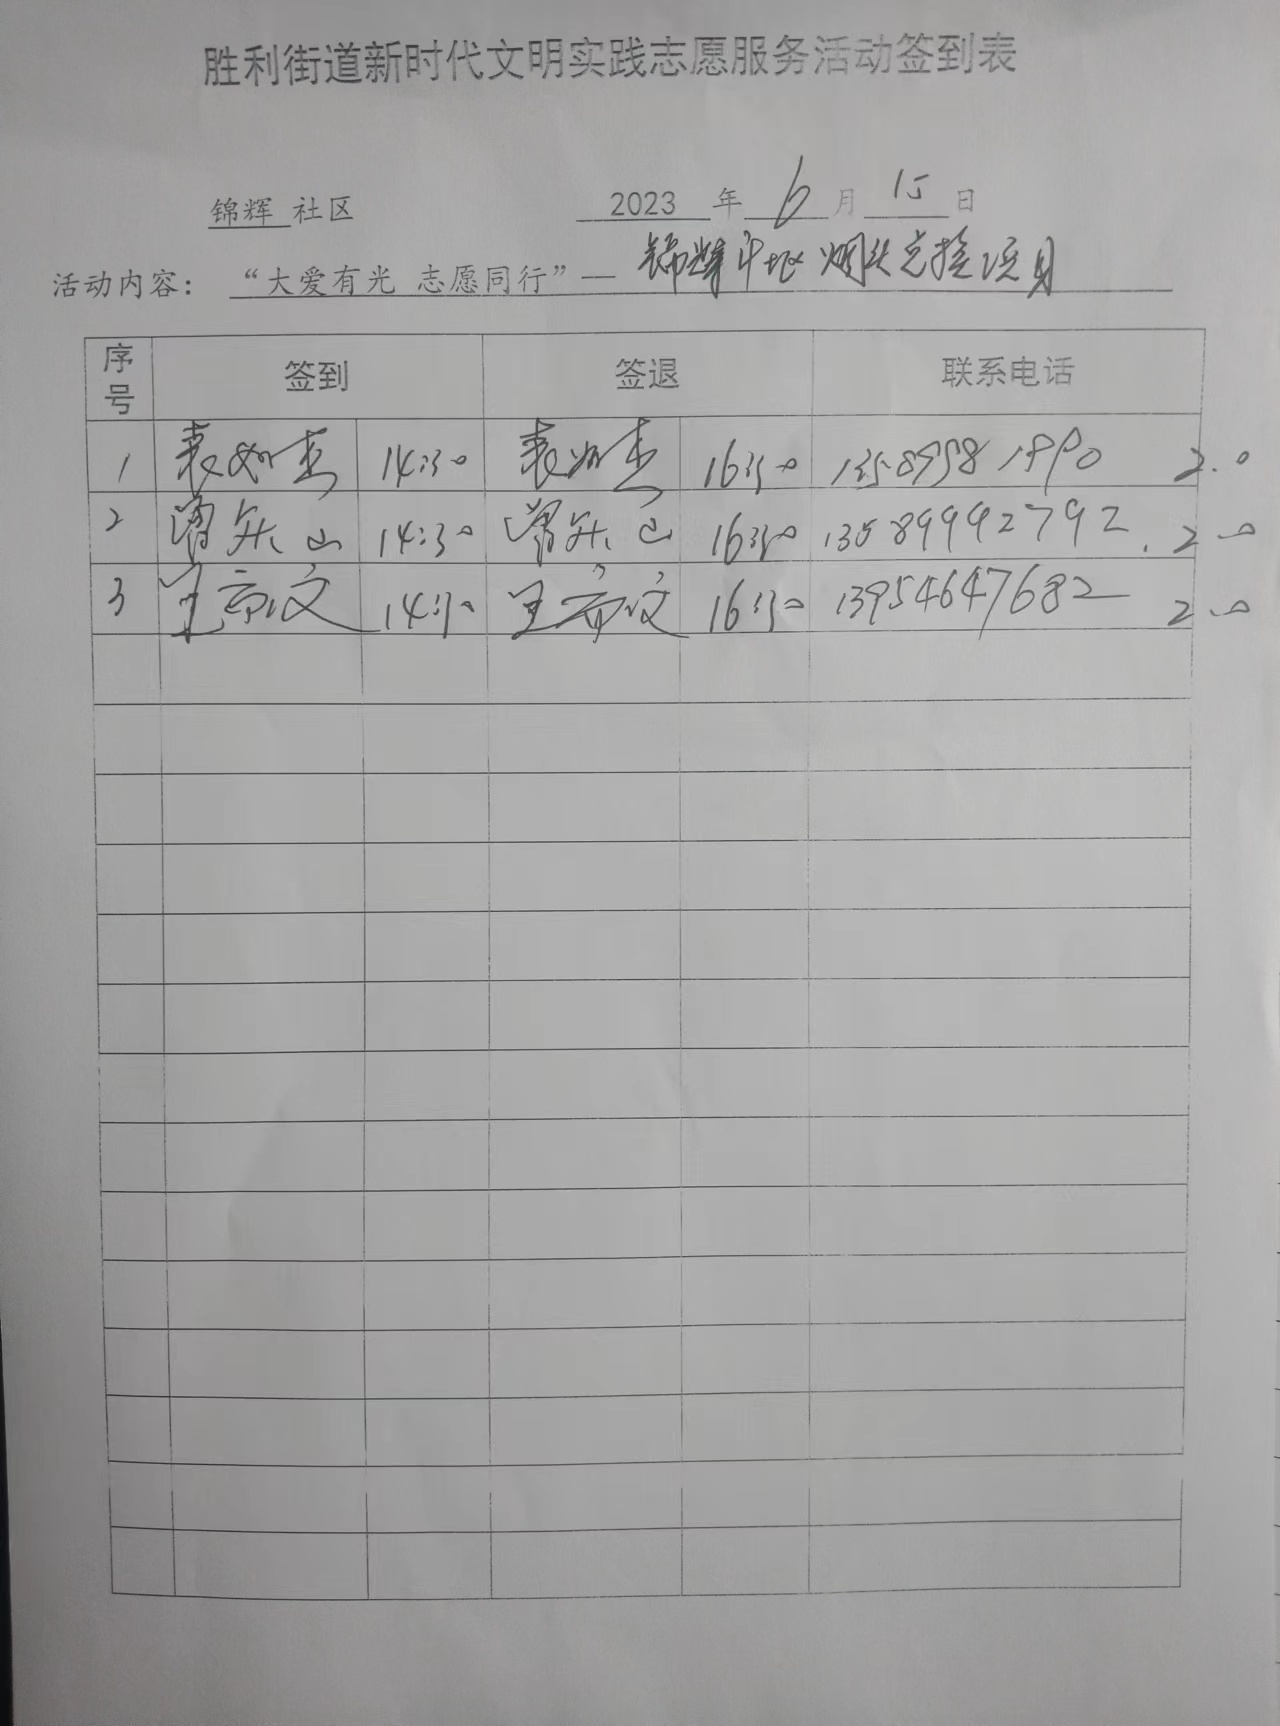 胜利街道新时代文明实践志愿服务活动签到表
锦辉 社区 2023 年 6 月 15 日
活动内容：“大爱有光 志愿同行”— 锦辉 烟头 捡 项目
序号 签到 签退 联系电话
1 袁如杰 14:30 袁如杰 16:30 13589581990 2.0
2 曾乐山 14:30 曾乐山 16:30 13589992792 2.0
3 14:30 16:30 13954647682 2.0